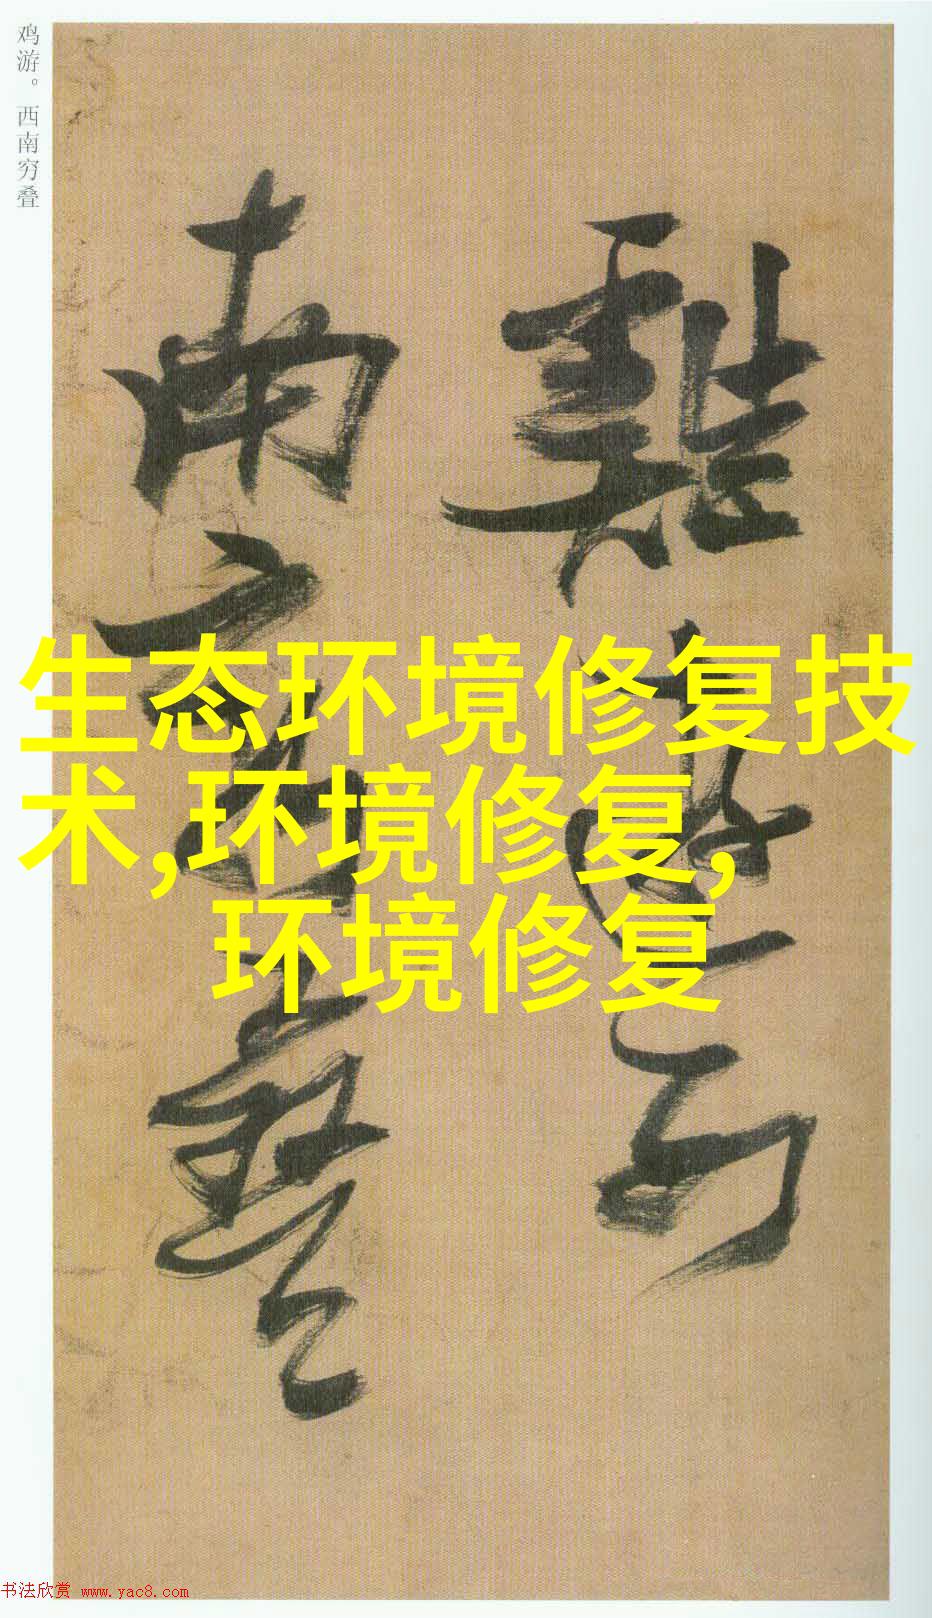 鸡游。西南穷叠
雞游西
南窮疊
生态环境修复技
术,环境修复,
环境修复
书法欣赏 www.yac8.com